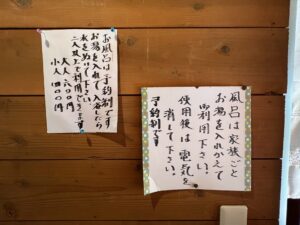 お風呂は予約制です
お湯を入れて入浴したら
水をぬいて下さい
二人以上で利用できます
大人 六〇〇円
小人 四〇〇円
風呂は家族ごと
お湯を入れかえて
御利用下さい!
使用後は電気を
消して下さい!
予約制です